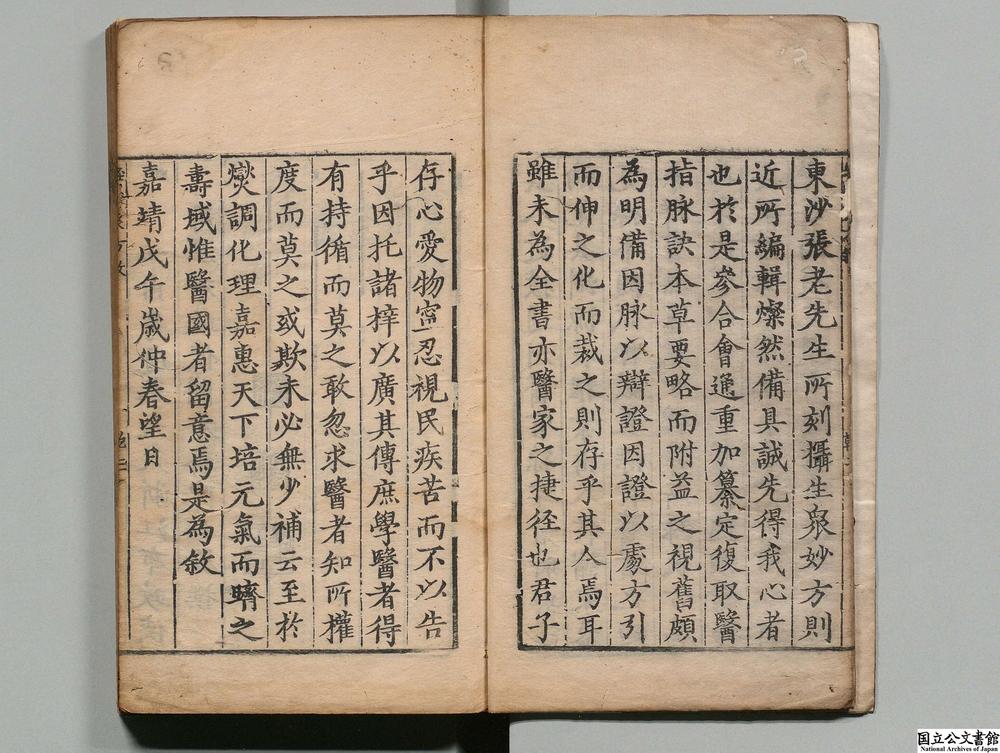 東沙張老先生所刻攝生衆妙方則
近所編輯燦然備具誠先得我心者
也於是參合會通重加纂定復取醫
指脉訣本草要略而附益之視舊頗
為明備因脉以辯證因證以處方引
而伸之化而裁之則存乎其人焉耳
雖未為全書亦醫家之捷径也君子
存心愛物寧忍視民疾苦而不以告
乎因托諸梓以廣其傳庶學醫者得
有持循而莫之敢忽求醫者知所權
度而莫之或欺未必無少補云至於
爕調化理嘉惠天下培元氣而躋之
壽域惟醫國者留意焉是為敘
嘉靖戊午歲仲春望日
国立公文書館
National Archives of Japan